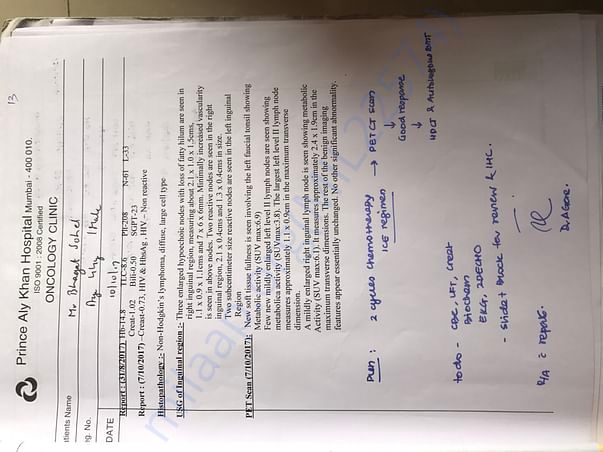 13
Prince Aly Khan Hospital Mumbai - 400 010.
ISO 9001 : 2008 Certified
ONCOLOGY CLINIC
atients Name Mr Bhagat Sohel
eg. No. Age 41y / Male
DATE 10/10/17
Report : (31/8/2017) Hb-14.8 TLC-8.6 Plt-208 N-61 L-33
Creat-1.02 Bili-0.50 SGPT-23
Report : (7/10/2017) –Creast-0.73, HIV & HbsAg : HIV – Non reactive
Histopathology :- Non-Hodgkin's lymphoma, diffuse, large cell type
USG of Inguinal region :- Three enlarged hypoechoic nodes with loss of fatty hilum are seen in
right inguinal region, measuring about 2.1 x 1.0 x 1.5ems,
1.1 x 0.9 x 1.1ems and 7 x 6 x 6mm. Minimally increased vascularity
is seen in above nodes. Two reactive nodes are seen in the right
inguinal region, 2.1 x 0.4cm and 1.3 x 0.4cm in size.
Two subcentimeter size reactive nodes are seen in the left inguinal
Region
PET Scan (7/10/2017): New soft tissue fullness is seen involving the left faucial tonsil showing
Metabolic activity (SUV max:6.9)
Few new mildly enlarged left level II lymph nodes are seen showing
metabolica activity (SUVmax:3.8). The largest left level II lymph node
measures approximately 1.1 x 0.9cm in the maximum transverse
dimension.
A mildly enlarged right inguinal lymph node is seen showing metabolic
Activity (SUV max:6.1). It measures approximately 2.4 x 1.9cm in the
maximum transverse dimensions. The rest of the benign imaging
features appear essentially unchanged. No other significant abnormality.
Plan : 2 cycles chemotherapy → PETCT Scan
ICE regimen ↓
Good response
↓
HDCT & Autologous BMT
to do - CBC, LFT, Creat
Biochem
EKG, 2DECHO
- slides & block for review & IHC.
R/A = reports.
D. Agare.